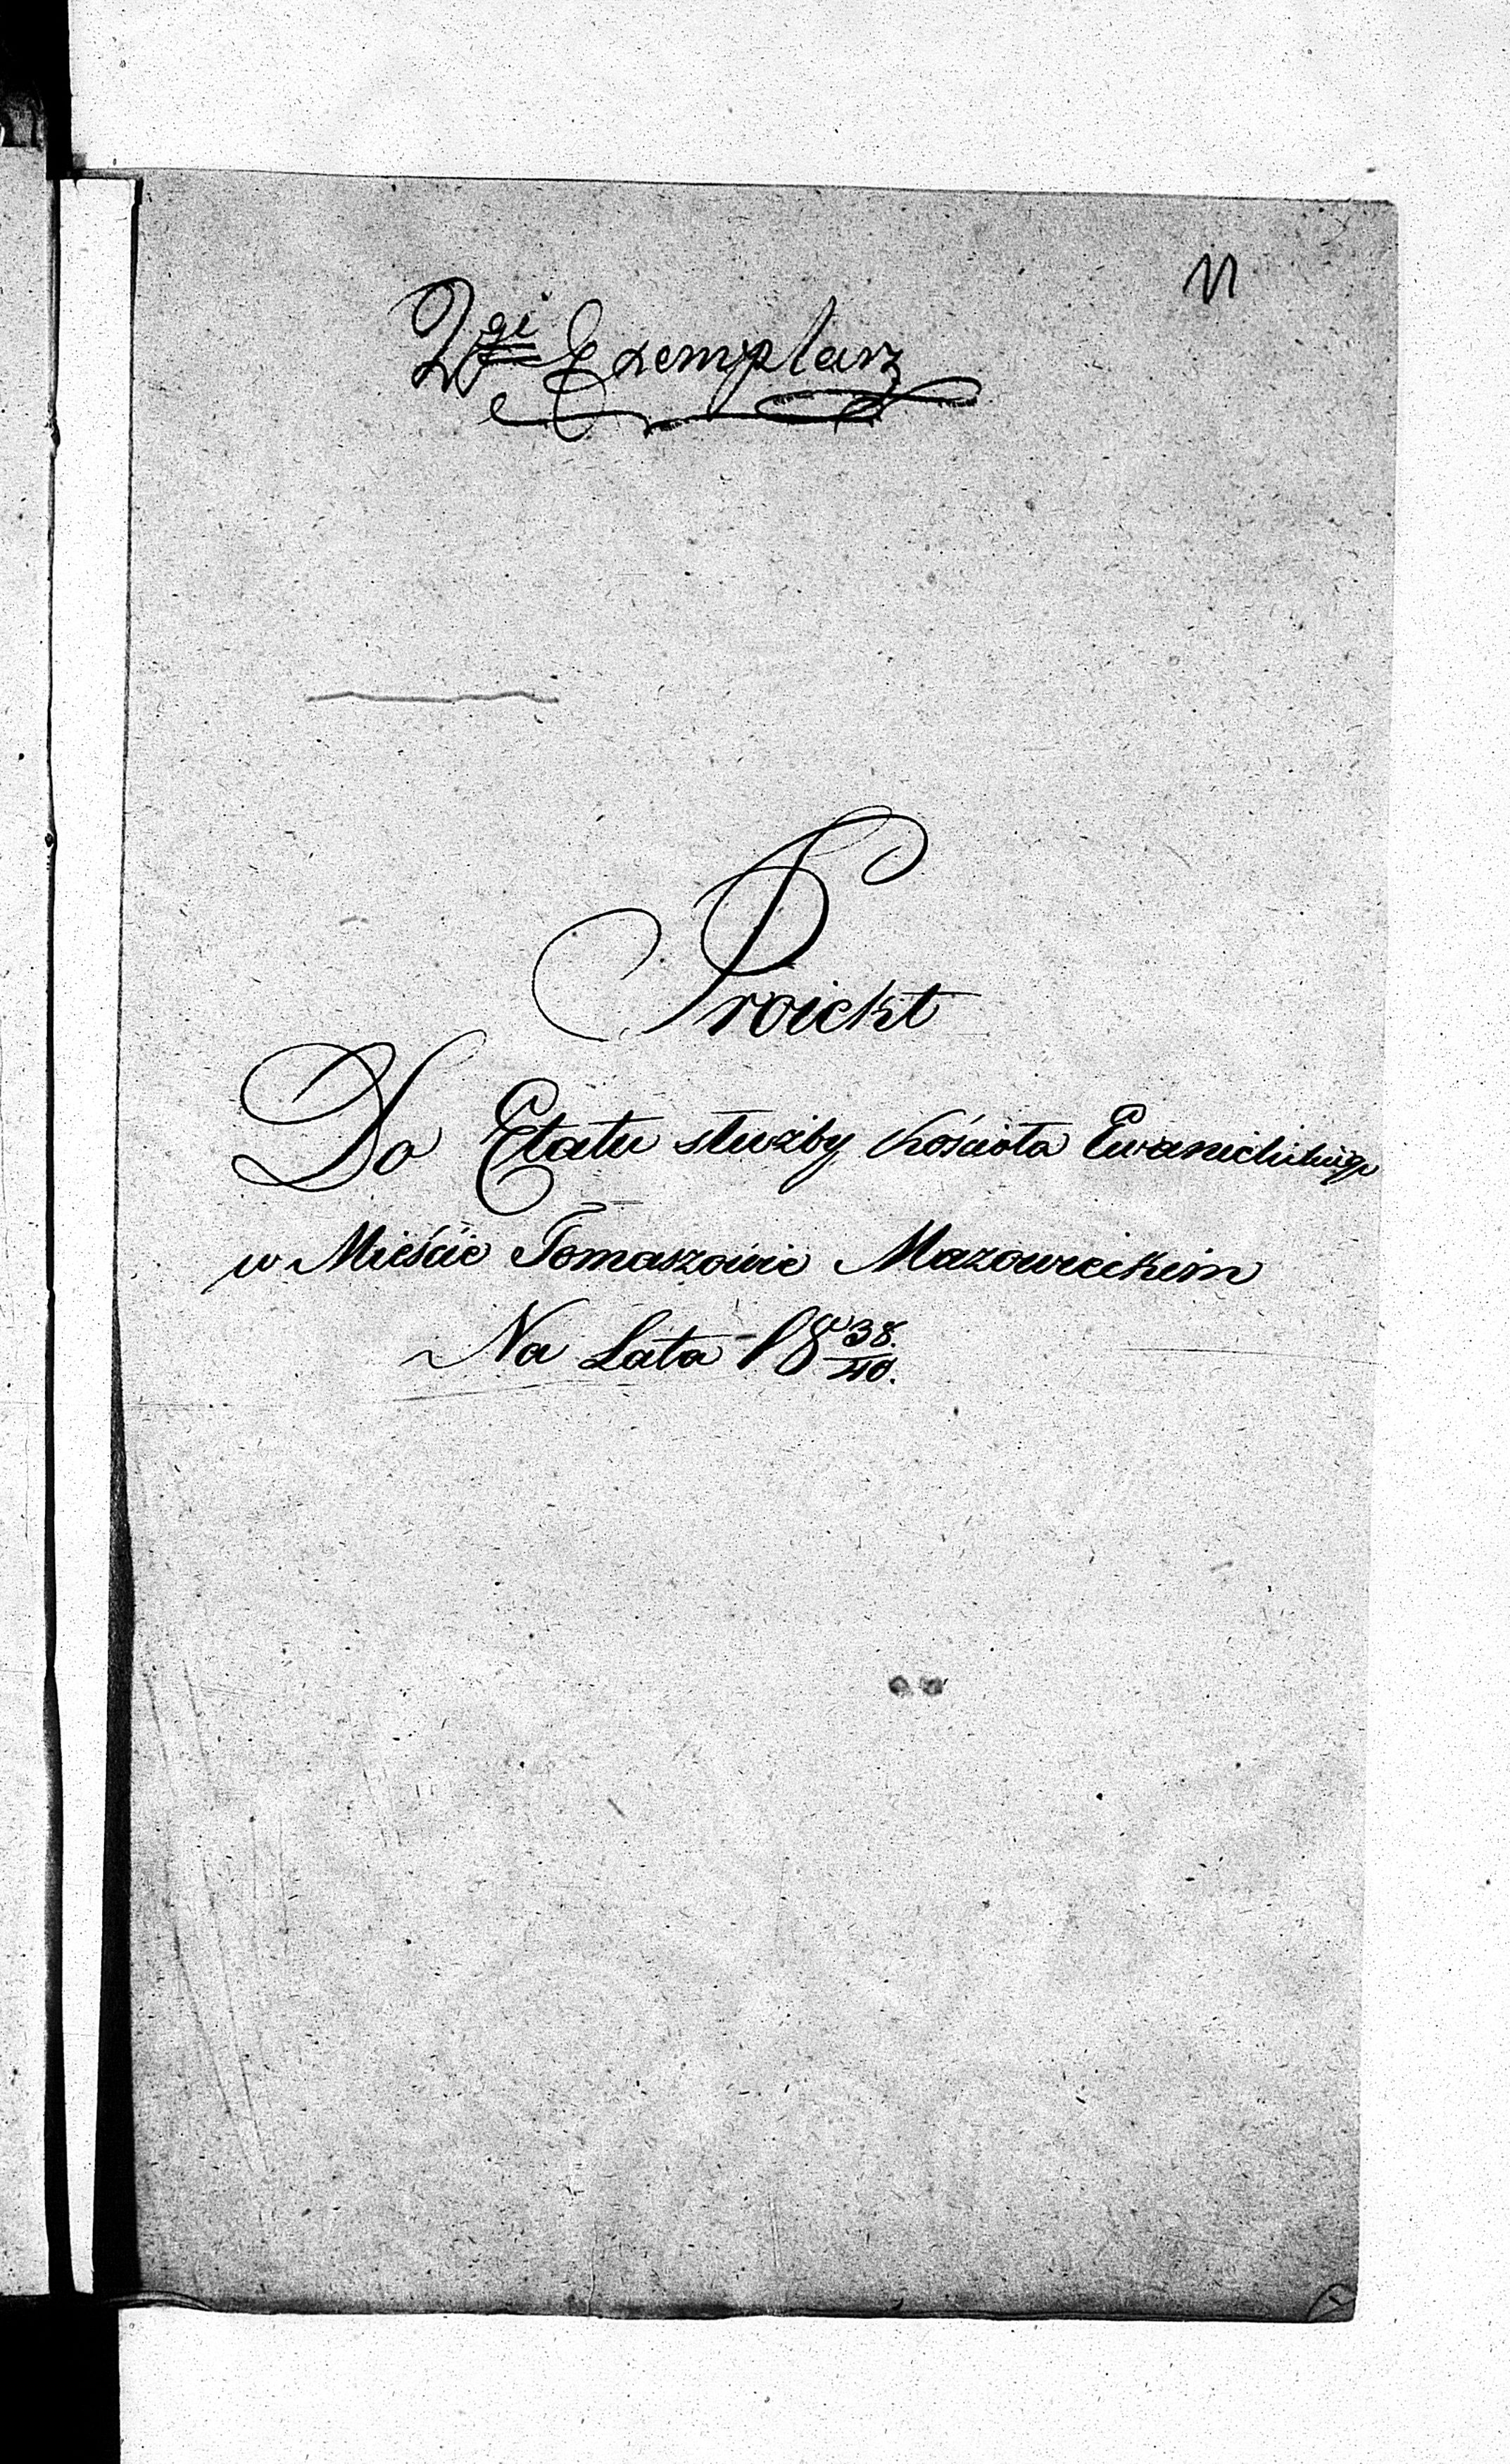 2gi Exemplarz
Proiekt
Do Etatu służby Kościoła Ewanielickiego
w Mieście Tomaszowie Mazowieckim
Na Lata 18 38/40.